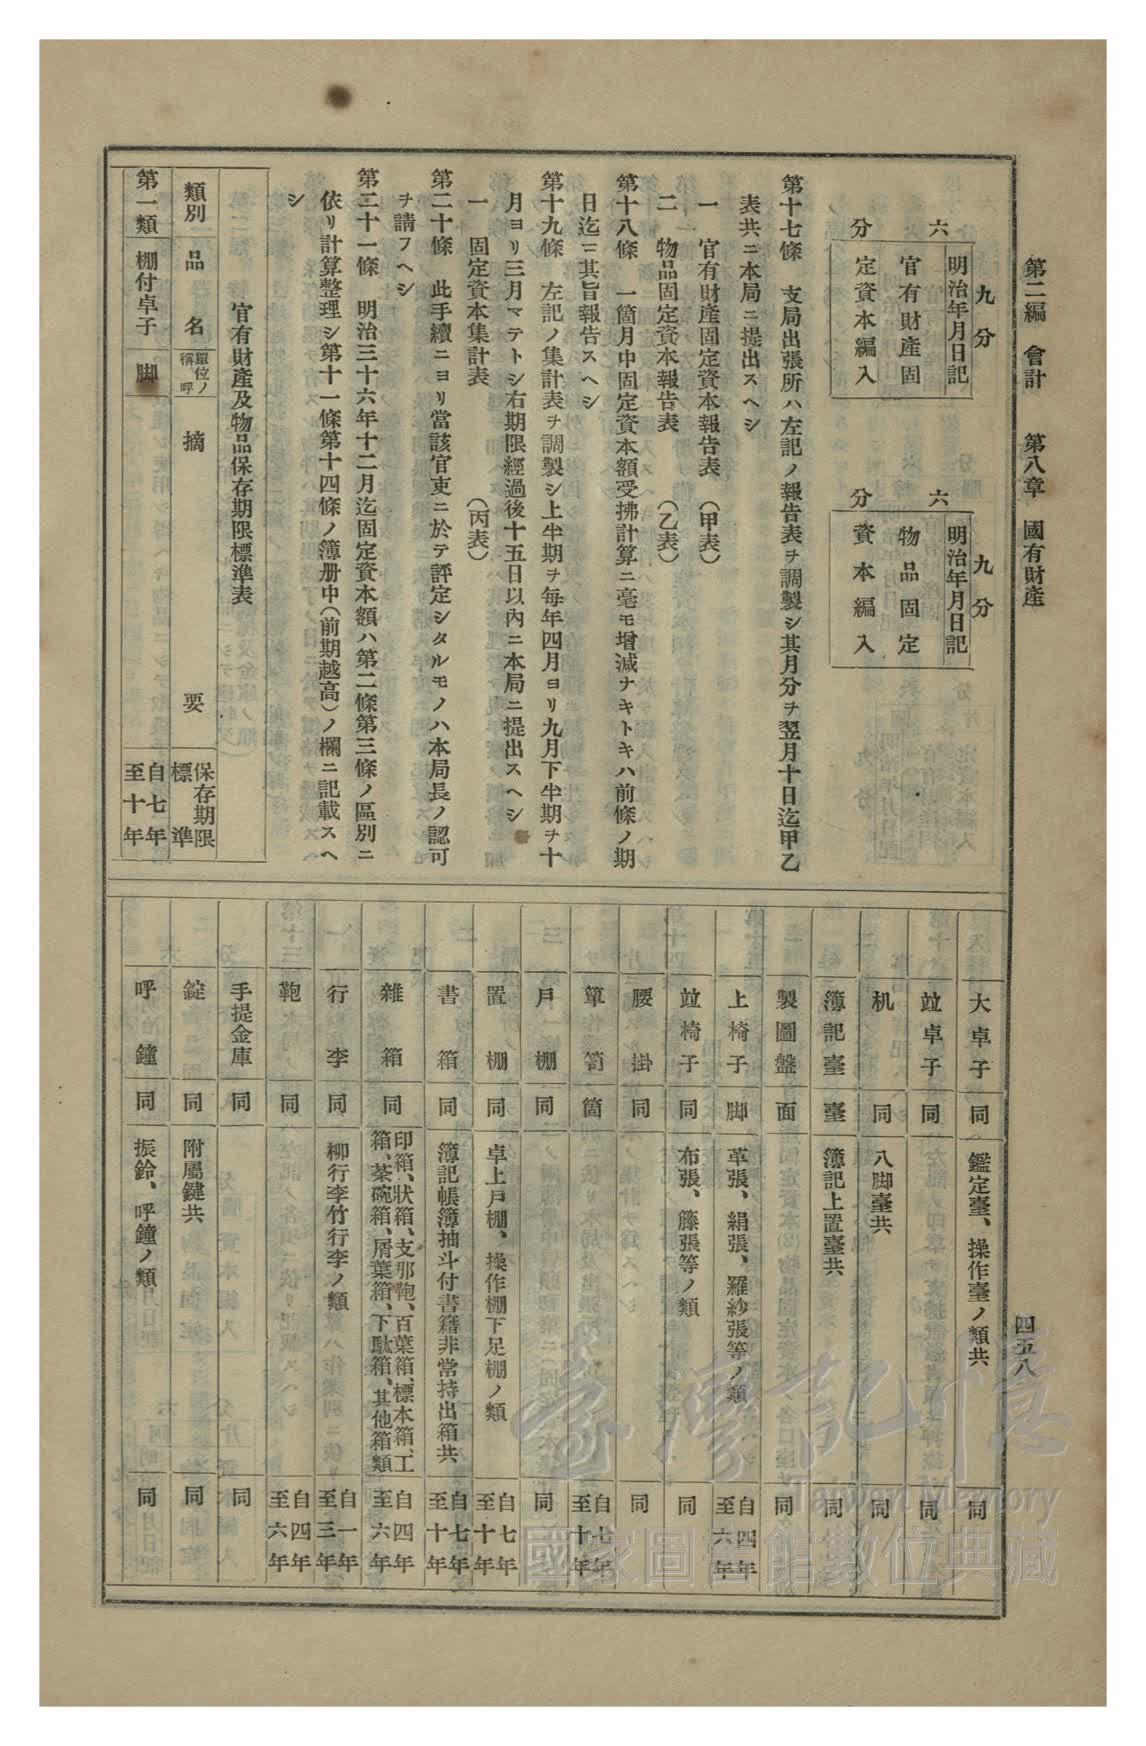 第二編　會計　　第八章　國有財產
四五八
九分
六分
明治年月日記
官有財產固
定資本編入
九分
六分
明治年月日記
物品固定
資本編入
第十七條　支局出張所ハ左記ノ報告表ヲ調製シ其月分ヲ翌月十日迄甲乙
表共ニ本局ニ提出スヘシ
一　官有財產固定資本報告表　（甲表）
二　物品固定資本報告表　（乙表）
第十八條　一箇月中固定資本額受拂計算ニ毫モ增減ナキトキハ前條ノ期
日迄ニ其旨報告スヘシ
第十九條　左記ノ集計表ヲ調製シ上半期ヲ每年四月ヨリ九月下半期ヲ十
月ヨリ三月マテトシ右期限經過後十五日以內ニ本局ニ提出スヘシ
一　固定資本集計表　（丙表）
第二十條　此手續ニヨリ當該官吏ニ於テ評定シタルモノハ本局長ノ認可
ヲ請フヘシ
第二十一條　明治三十六年十二月迄固定資本額ハ第二條第三條ノ區別ニ
依リ計算整理シ第十一條第十四條ノ簿册中（前期越高）ノ欄ニ記載スヘ
シ
官有財產及物品保存期限標準表
類別　品名　單位ノ稱呼　摘要　保存期限標準
第一類　棚付卓子　脚　自七年至十年
大卓子　同　鑑定臺、操作臺ノ類共　同
竝卓子　同　同
机　同　八脚臺共　同
簿記臺　臺　簿記上置臺共　同
製圖盤　面　同
上椅子　脚　革張、絹張、羅紗張等ノ類　自四年至六年
竝椅子　同　布張、籐張等ノ類　同
腰掛　同　同
簞笥　箇　自七年至十年
戶棚　同　同
置棚　同　卓上戶棚、操作棚下足棚ノ類　自七年至十年
書箱　同　簿記帳簿抽斗付書籍非常持出箱共　自七年至十年
雜箱　同　印箱、狀箱、支那鞄、百葉箱、標本箱、工箱、茶碗箱、屑葉箱、下駄箱、其他箱類　自四年至六年
行李　同　柳行李竹行李ノ類　自一年至三年
鞄　同　自四年至六年
手提金庫　同　同
錠　同　附屬鍵共　同
呼鐘　同　振鈴、呼鐘ノ類　同
臺灣記憶
Taiwan Memory
國家圖書館數位典藏